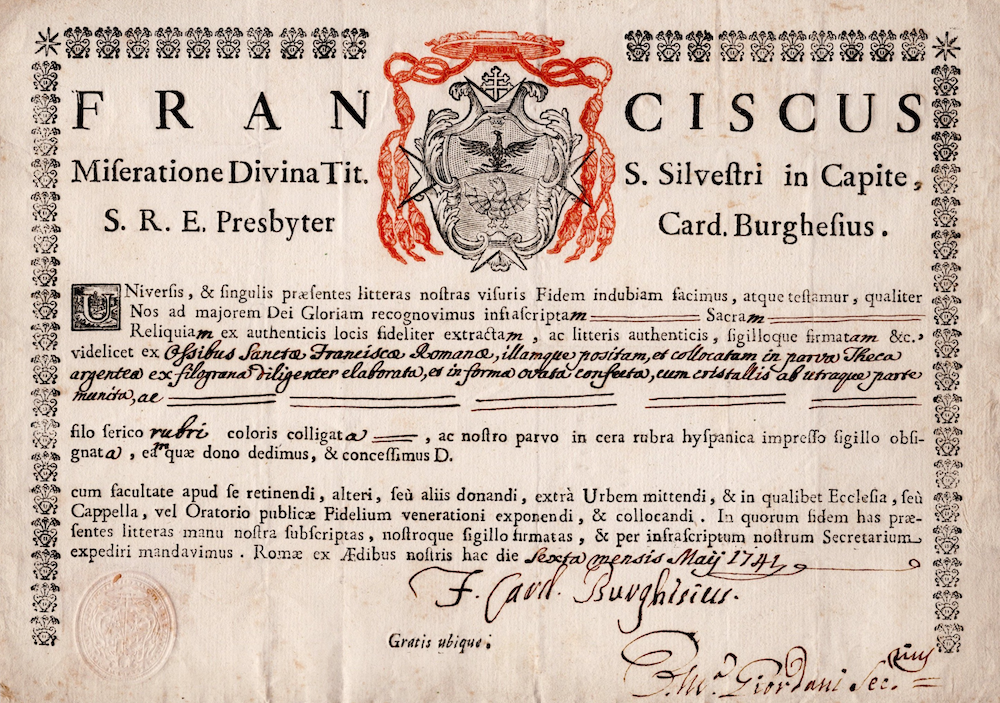 FRANCISCUS
Miſeratione Divina Tit. S. Silveſtri in Capite,
S. R. E. Presbyter Card. Burgheſius.
UNiverſis, & ſingulis præſentes litteras noſtras viſuris Fidem indubiam facimus, atque teſtamur, qualiter
Nos ad majorem Dei Gloriam recognovimus infraſcriptam Sacram
Reliquiam ex authenticis locis fideliter extractam, ac litteris authenticis, ſigilloque firmatam &c.
videlicet ex Ossibus Sanctæ Franciscæ Romanæ, illamque positam, et collocatam in parva Theca
argentea ex filograna diligenter elaborata, et in forma ovata confecta, cum cristallis ab utraque parte
munita, ac
filo ſerico rubri coloris colligata, ac noſtro parvo in cera rubra hyſpanica impreſſo ſigillo obſi-
gnata, eamquæ dono dedimus, & conceſſimus D.
cum facultate apud ſe retinendi, alteri, ſeù aliis donandi, extrà Urbem mittendi, & in qualibet Eccleſia, ſeù
Cappella, vel Oratorio publicæ Fidelium venerationi exponendi, & collocandi. In quorum fidem has præ-
ſentes litteras manu noſtra ſubſcriptas, noſtroque ſigillo firmatas, & per infraſcriptum noſtrum Secretarium
expediri mandavimus. Romæ ex Ædibus noſtris hac die sexta mensis Maij 1741
F. Card. Burghesius.
Gratis ubique.
Giordani Sec.rius